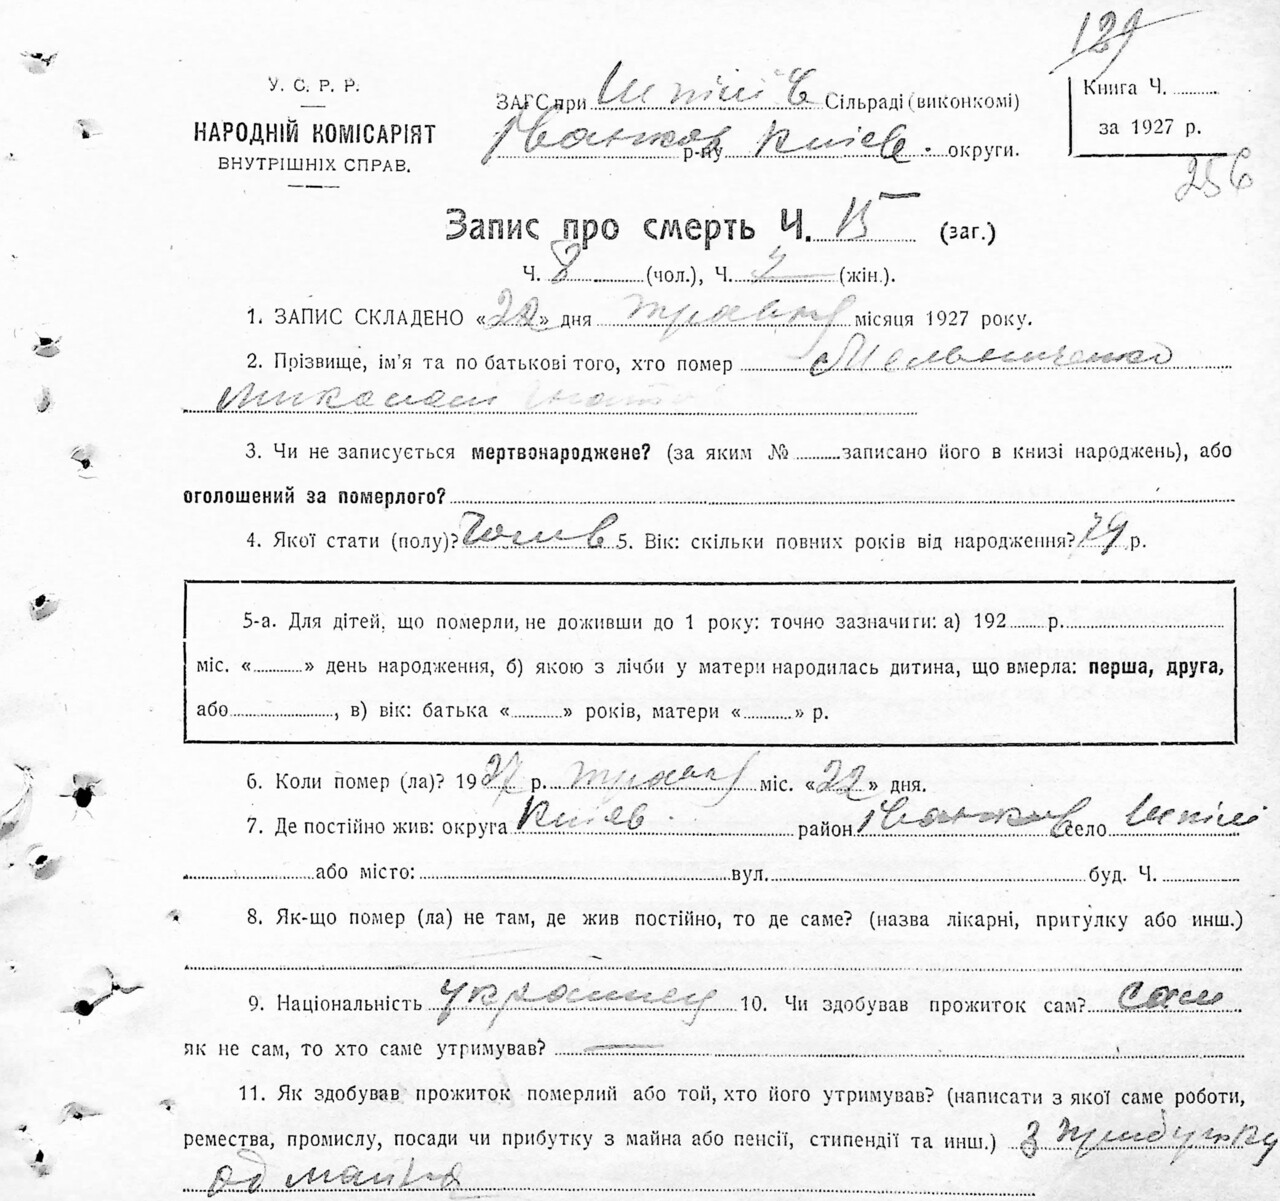 129
У. С. Р. Р.
НАРОДНІЙ КОМІСАРІЯТ
ВНУТРІШНІХ СПРАВ.
ЗАГС при Шпілів Сільраді (виконкомі)
Іванков р-ну Київ. округи.
Книга Ч.
за 1927 р.
256
Запис про смерть Ч. 15 (заг.)
Ч. 8 (чол.), Ч. (жін.).
1. ЗАПИС СКЛАДЕНО «22» дня травня місяця 1927 року.
2. Прізвище, ім'я та по батькові того, хто помер Мельниченко
Микалай
3. Чи не записується мертвонароджене? (за яким № записано його в книзі народжень), або
оголошений за померлого?
4. Якої стати (полу)? Чолов 5. Вік: скільки повних років від народження? 79 р.
5-а. Для дітей, що померли, не доживши до 1 року: точно зазначити: а) 192 р.
міс. « » день народження, б) якою з лічби у матери народилась дитина, що вмерла: перша, друга,
або , в) вік: батька « » років, матери « » р.
6. Коли помер (ла)? 1927 р. травня міс. «22» дня.
7. Де постійно жив: округа Київ. район Іванков село Шпілі
або місто: вул. буд. Ч.
8. Як-що помер (ла) не там, де жив постійно, то де саме? (назва лікарні, притулку або инш.)
9. Національність українец 10. Чи здобував прожиток сам? сам
як не сам, то хто саме утримував? —
11. Як здобував прожиток померлий або той, хто його утримував? (написати з якої саме роботи,
ремества, промислу, посади чи прибутку з майна або пенсії, стипендії та инш.) З прибутку
од майна